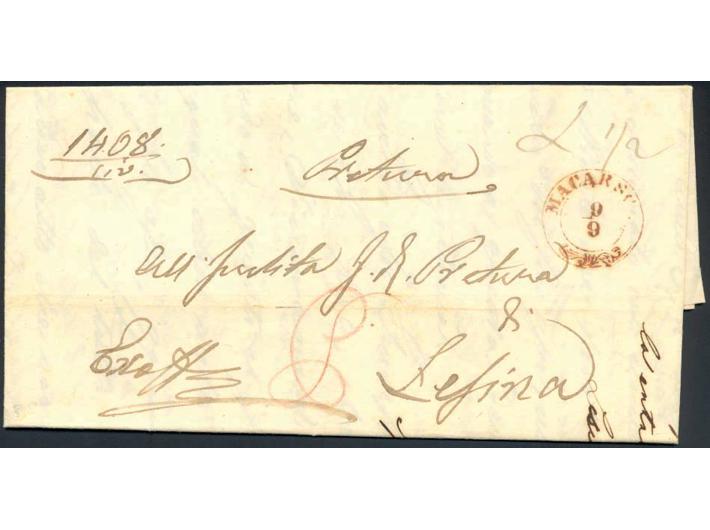 1408.
civ.
Pretura
2 1/2
MACARSCA
9
9
All' Inclita I. R. Pretura
di
Lesina
Exoff